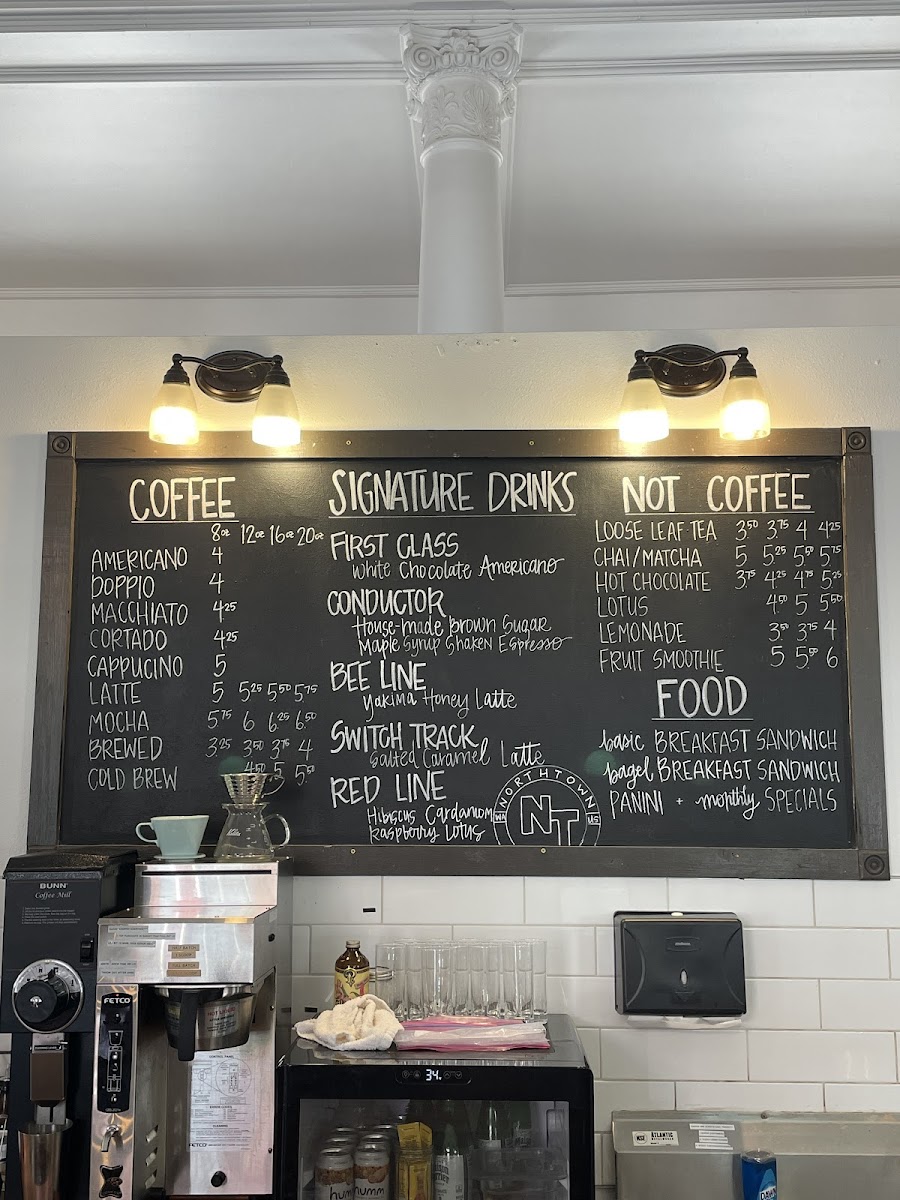 COFFEE
8oz 12oz 16oz 20oz
AMERICANO 4
DOPPIO 4
MACCHIATO 4.25
CORTADO 4.25
CAPPUCINO 5
LATTE 5 5.25 5.50 5.75
MOCHA 5.75 6 6.25 6.50
BREWED 3.25 3.50 3.75 4
COLD BREW 4.50 5 5.50
SIGNATURE DRINKS
FIRST CLASS
White Chocolate Americano
CONDUCTOR
House-made Brown Sugar
Maple Syrup Shaken Espresso
BEE LINE
Yakima Honey Latte
SWITCH TRACK
Salted Caramel Latte
RED LINE
Hibiscus Cardamom
Raspberry Lotus
NORTHTOWN
WA NT US
NOT COFFEE
LOOSE LEAF TEA 3.50 3.75 4 4.25
CHAI/MATCHA 5 5.25 5.50 5.75
HOT CHOCOLATE 3.75 4.25 4.75 5.25
LOTUS 4.50 5 5.50
LEMONADE 3.50 3.75 4
FRUIT SMOOTHIE 5 5.50 6
FOOD
basic BREAKFAST SANDWICH
bagel BREAKFAST SANDWICH
PANINI + monthly SPECIALS
BUNN
Coffee Mill
FETCO
FETCO
34
humm
humm
ATLANTIC
DAWN